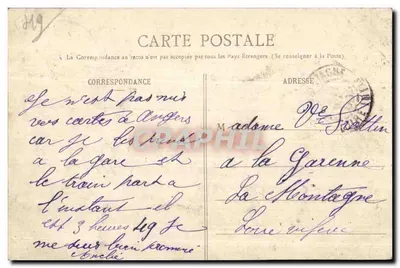 219
CARTE POSTALE
La Correspondance au recto n'est pas acceptée par tous les Pays Étrangers (Se renseigner à la Poste).
CORRESPONDANCE
ADRESSE
Je n'est pas mis
vos cartes à Angers
car je les
a la gare et
le train part a
l'instant il
est 3 heures 49 Je
me suis bien
Madame Ve
a la Garenne
La Montagne
Loire infre